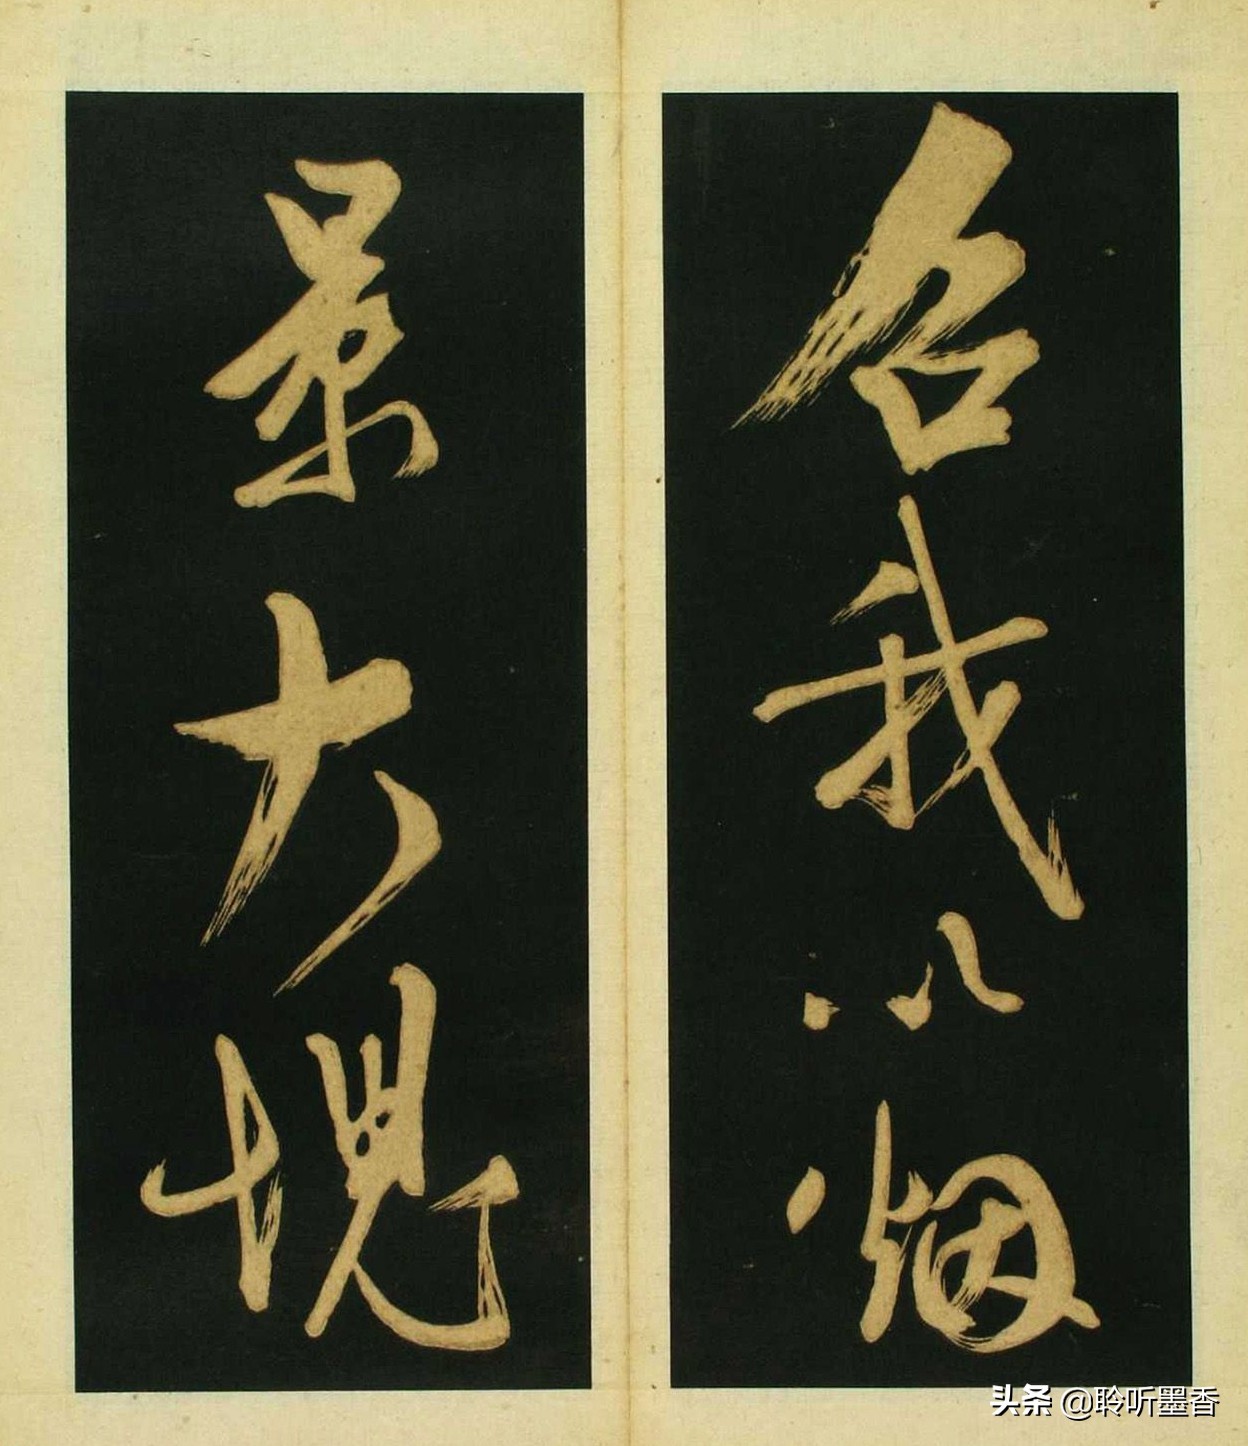 召我以烟
景大塊
头条 @聆听墨香